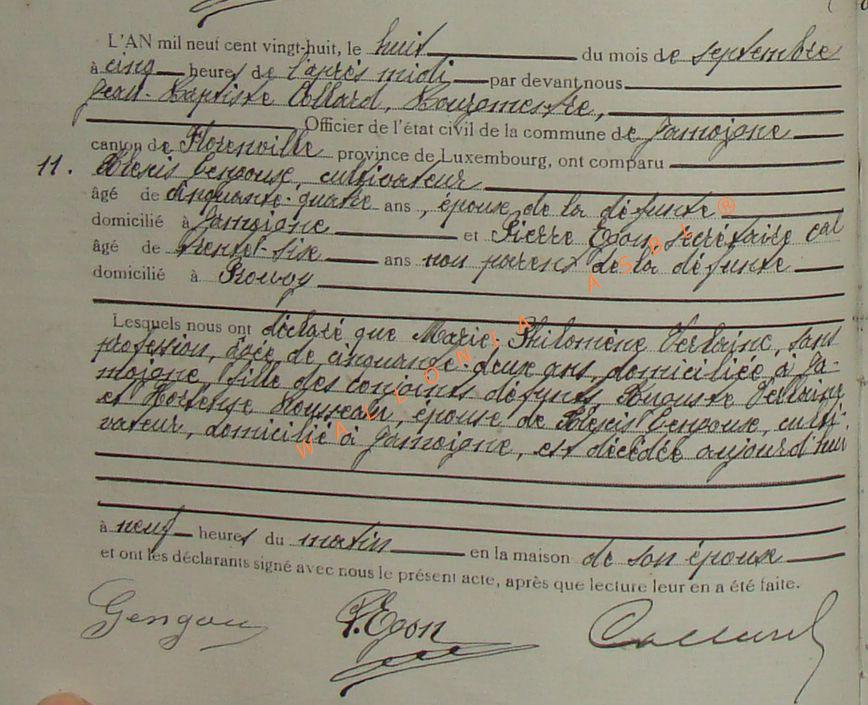 L'AN mil neuf cent vingt-huit, le huit du mois de septembre
à cinq heures de l'après midi par devant nous
Jean-Baptiste Collard, Bourgmestre,
Officier de l'état civil de la commune de Jamoigne
canton de Florenville province de Luxembourg, ont comparu
11. Alexis Gengoux, cultivateur
âgé de cinquante-quatre ans, époux de la défunte
domicilié à Jamoigne et Pierre Egon, secrétaire cal
âgé de trente-six ans non parent de la défunte
domicilié à Prouvy
Lesquels nous ont déclaré que Marie Philomène Verlaine, sans
profession, âgée de cinquante-deux ans, domiciliée à Ja-
moigne, fille des conjoints défunts, Auguste Verlaine
et Hortense, épouse de Alexis Gengoux, culti-
vateur, domicilié à Jamoigne, est décédée aujourd'hui
à neuf heures du matin en la maison de son époux
et ont les déclarants signé avec nous le présent acte, après que lecture leur en a été faite.
Gengoux P. Egon Collard
WALLONIA ASBL ®